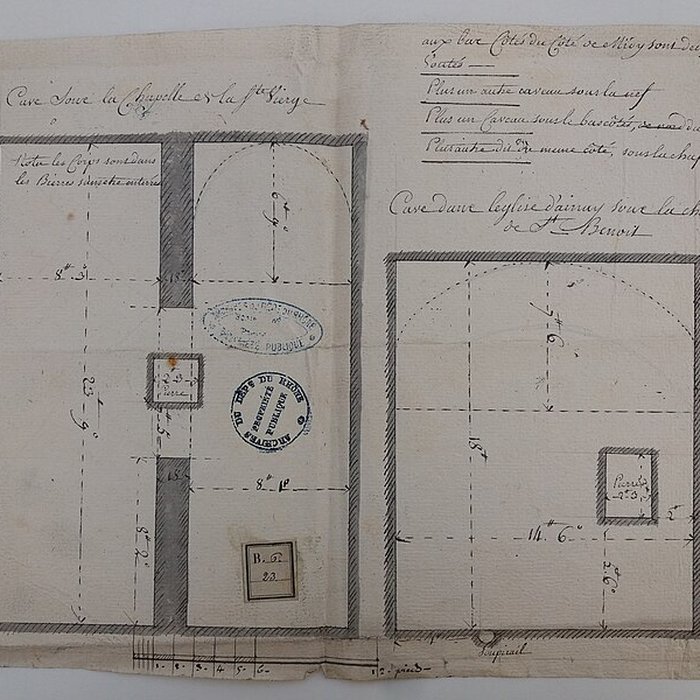 aux bas Cotés du Côté de Midy sont de
Voutés
Plus un autre caveau sous la nef
Plus un Caveau sous le bas cotés, de nord d
Plus autre dit du meme coté, sous la chap
Cave sous la Chapelle de la Ste Vierge
Nota les Corps sont dans
les Bierres sans etre enterrés
6" 9°
8" 3
18°
23" 9°
2" 3
Pierre
5"
18°
8" 1°
8" 2°
ARCHIVES DU DÉPT DU RHÔNE
PROPRIÉTÉ
PUBLIQUE
B. Pl.
23
1 2 3 4 5 6 12 pieds
Cave dans l'eglise d'ainay sous la ch
de St Benoit
7" 6°
18"
Pierre
2" 3
14" 6°
2" 6°
Soupirail